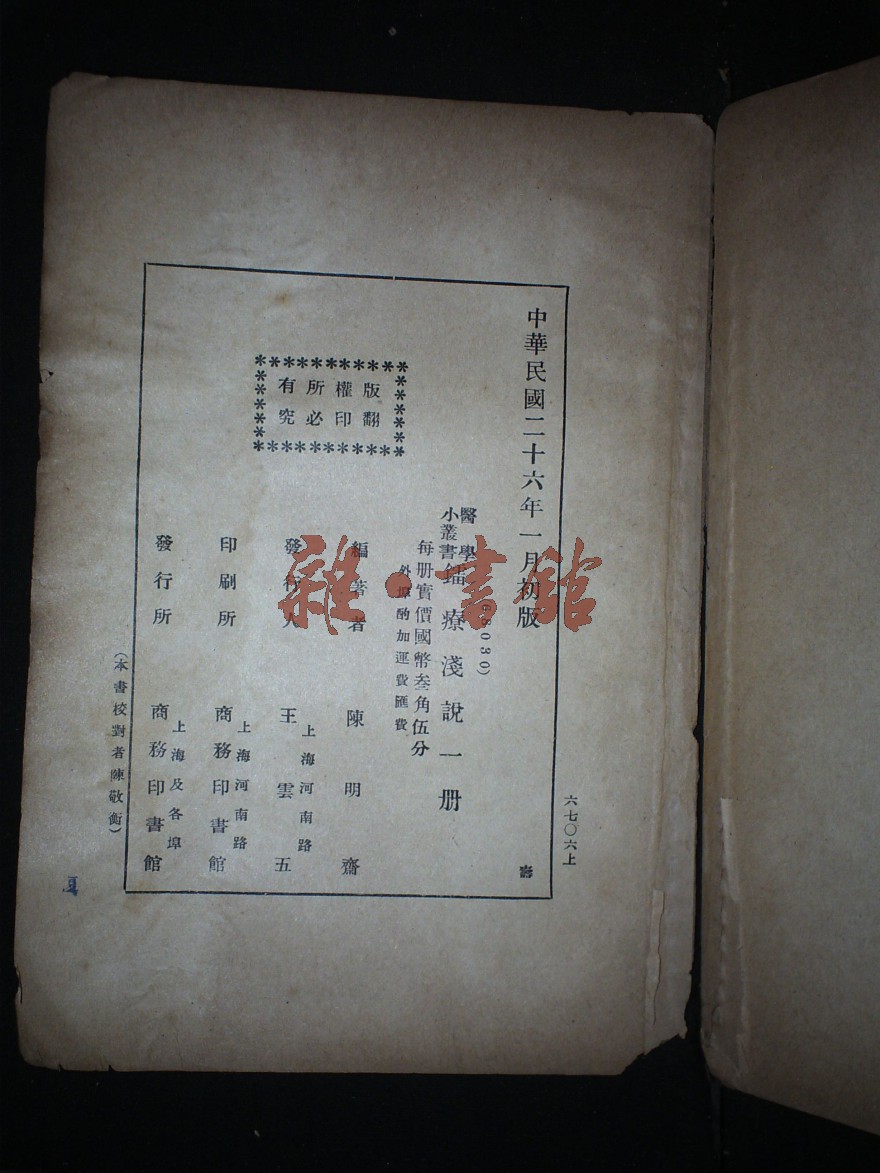 六七〇六上
中華民國二十六年一月初版
醫學
小叢書
鐳療淺說一册
每册實價國幣叁角伍分
外埠酌加運費匯費
版權所有
翻印必究
編著者 陳明齋
發行人 王雲五
上海河南路
印刷所 商務印書館
上海河南路
發行所 商務印書館
上海及各埠
(本書校對者陳敬衡)
雜·書館